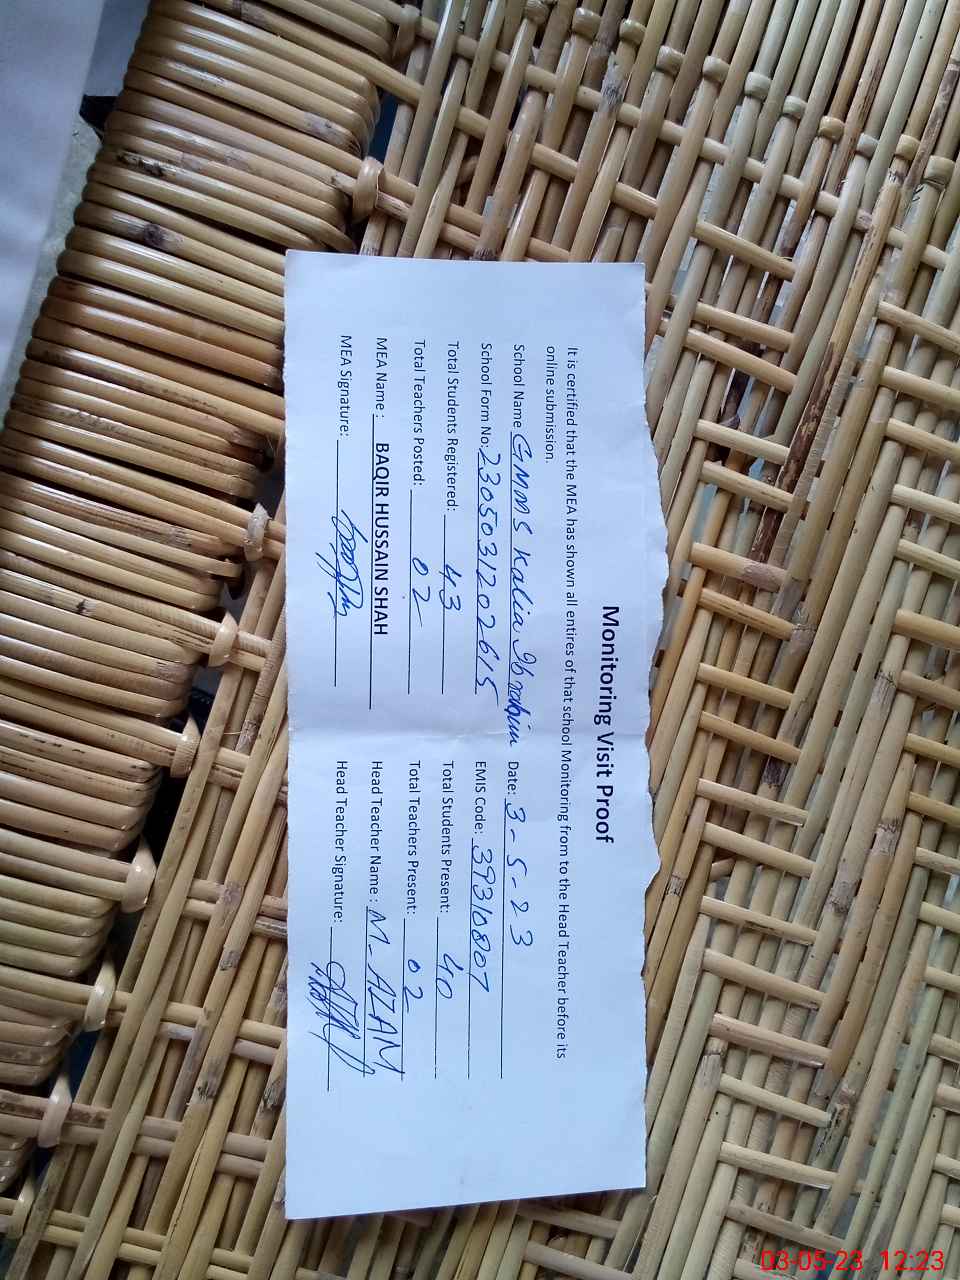 Monitoring Visit Proof
It is certified that the MEA has shown all entires of that school Monitoring from to the Head Teacher before its
online submission.
School Name GMMS Kalia Ibrahim Date: 3-5-23
School Form No: 2305031202615 EMIS Code: 39310807
Total Students Registered: 43 Total Students Present: 40
Total Teachers Posted: 02 Total Teachers Present: 02
MEA Name : BAQIR HUSSAIN SHAH Head Teacher Name : M-AZAM
MEA Signature: Head Teacher Signature:
03-05-23 12:23